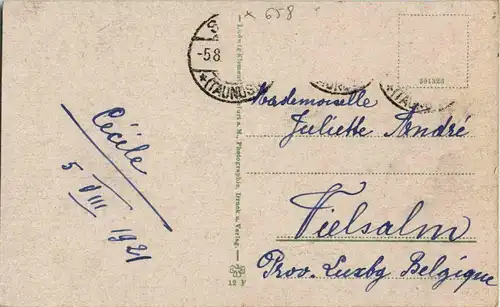 x 658
-5.8.
*(TAUNUS)
391323
Mademoiselle
Juliette André
Vielsalm
Prov. Luxbg Belgique
Cécile
5 VIII 1921
a. M., Photographie, Druck u. Verlag.
12 F